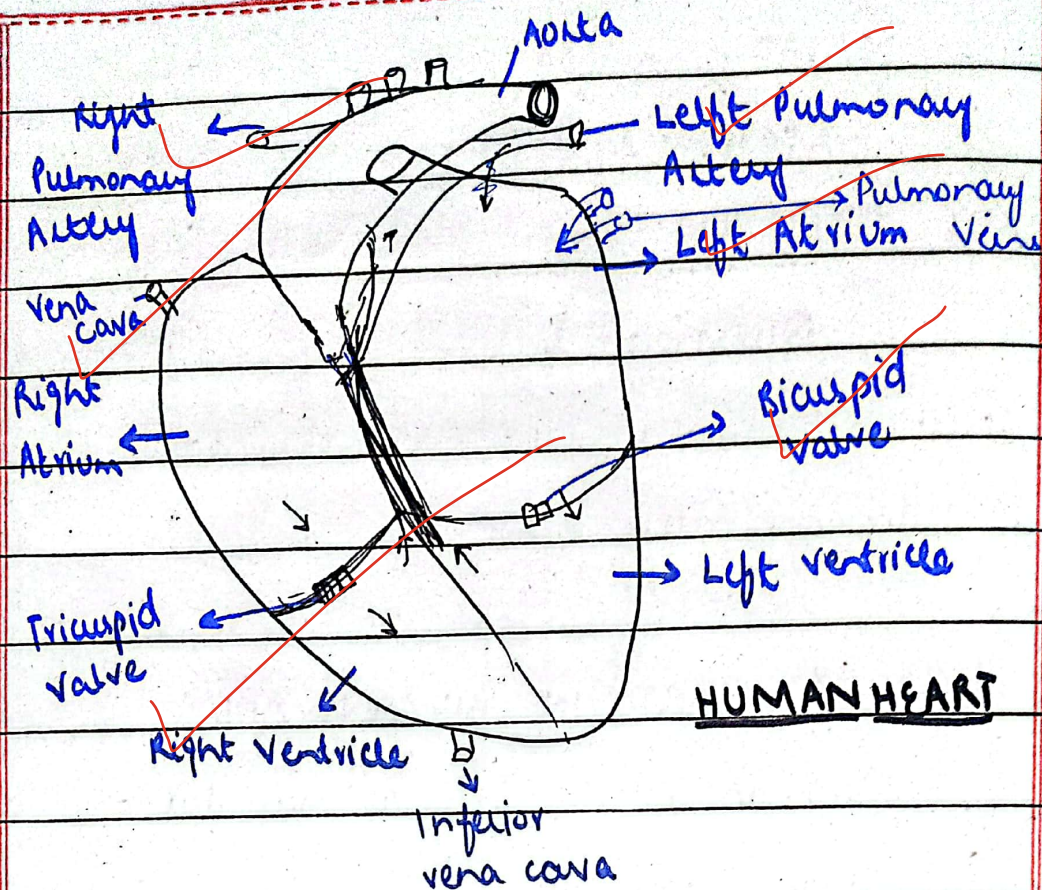 Aorta
Right
Pulmonary
Artery
Lelft Pulmonary
Artery
Pulmonary
Veins
Left Atrium
vena
cava
Right
Atrium
Bicuspid
valve
Left ventricle
Tricuspid
valve
Right ventricle
HUMAN HEART
Inferior
vena cava